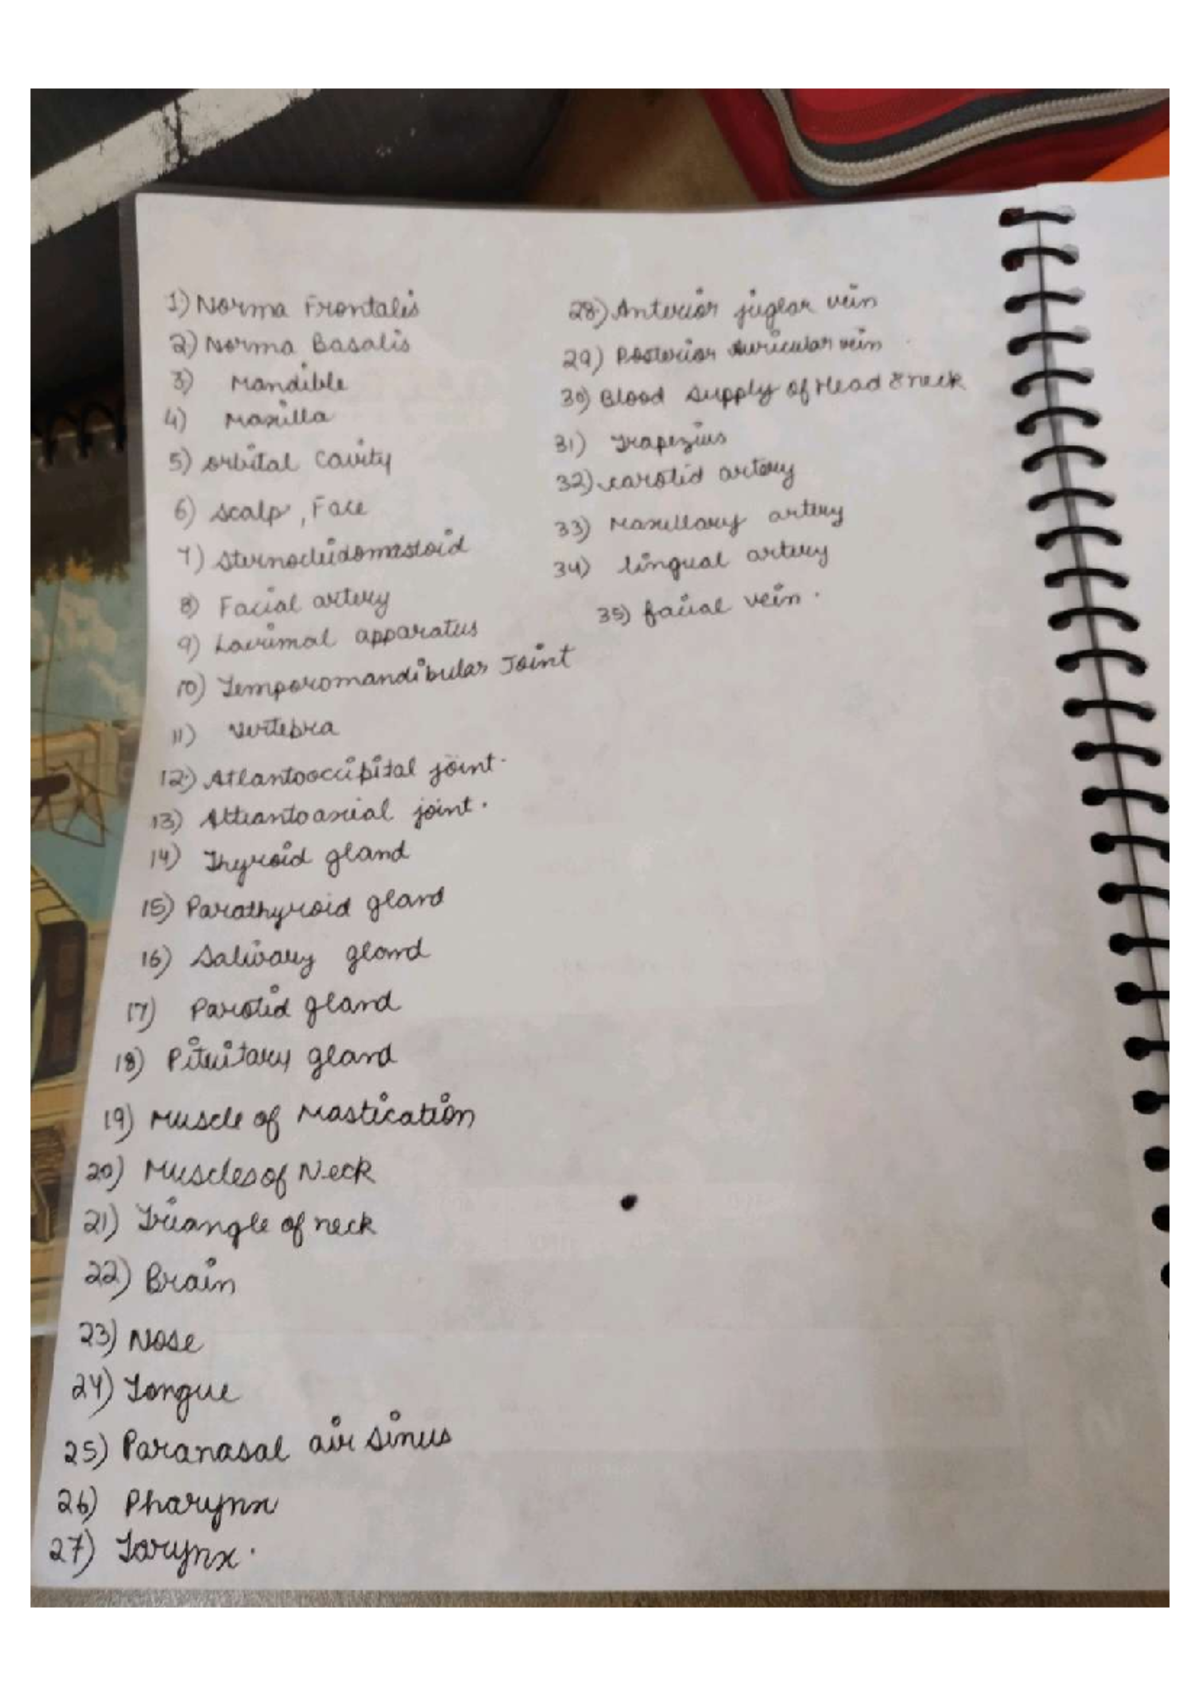 1) Norma Frontalis
2) Norma Basalis
3) Mandible
4) Maxilla
5) orbital cavity
6) scalp, Face
7) Sternocleidomastoid
8) Facial artery
9) Lacrimal apparatus
10) Temporomandibular Joint
11) vertebra
12) Atlantooccipital joint.
13) Attantoaxial joint.
14) Thyroid gland
15) Parathyroid gland
16) Salivary gland
17) Parotid gland
18) Pituitary gland
19) Muscle of Mastication
20) Muscles of Neck
21) Triangle of neck
22) Brain
23) Nose
24) Tongue
25) Paranasal air sinus
26) Pharynx
27) Larynx.
28) Anterior juglar vein
29) Posterior Auricular vein
30) Blood supply of Head & neck
31) Trapezius
32) carotid artery
33) Maxillary artery
34) lingual artery
35) facial vein.